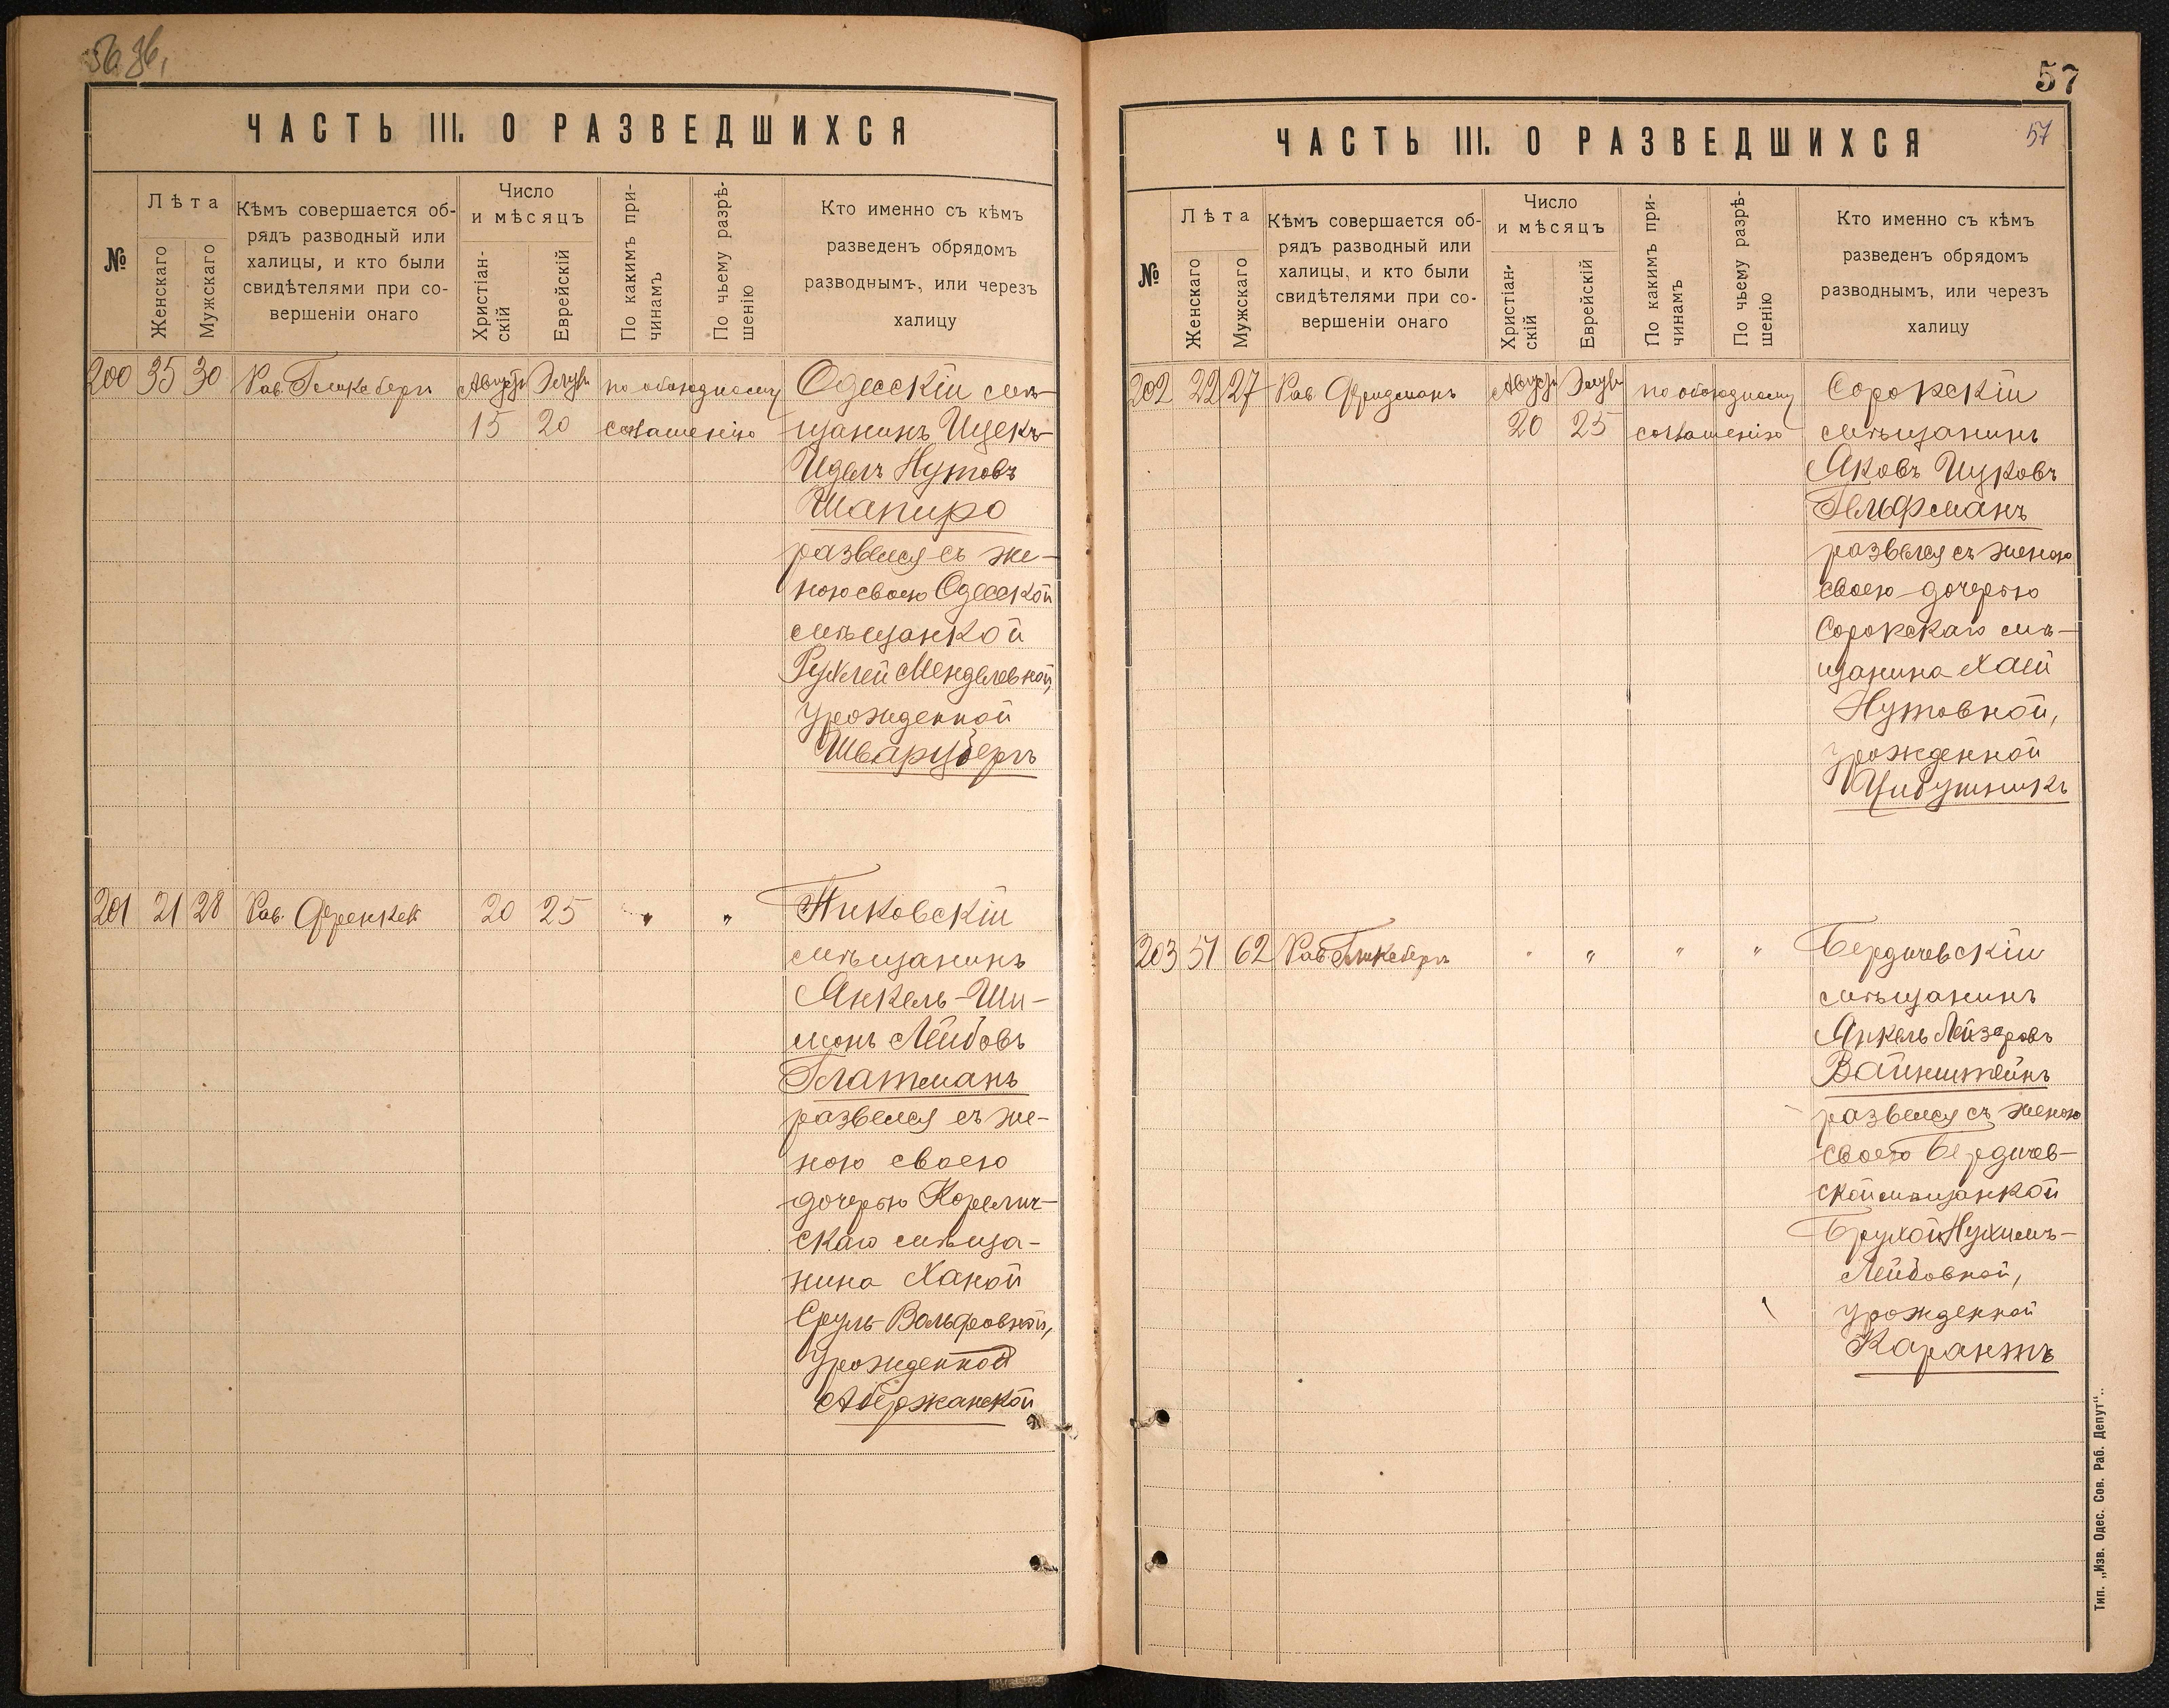 ЧАСТЬ III. О РАЗВЕДШИХСЯ
№
Лѣта
Женскаго
Мужскаго
Кѣмъ совершается об-
рядъ разводный или
халицы, и кто были
свидѣтелями при со-
вершеніи онаго
Число
и мѣсяцъ
Христіан-
скій
Еврейскій
По какимъ при-
чинамъ
По чьему разрѣ-
шенію
Кто именно съ кѣмъ
разведенъ обрядомъ
разводнымъ, или черезъ
халицу
200 35 30 Рав. Гликсбергъ Августъ Элулъ по обоюдному Одесскій мѣ-
15 20 соглашенію щанинъ Ицекъ-
Идель Нутовъ
Шапиро
развелся съ же-
ною своею Одесской
мѣщанкой
Рухлей Менделевной,
урожденной
Шварцбергъ
201 21 28 Рав. Френкель 20 25 " " Пиковскій
мѣщанинъ
Анкель-Ши-
монъ Лейбовъ
Глатманъ
развелся съ же-
ною своею
дочерью Корелич-
скаго мѣща-
нина Ханой
Сруль-Вольфовной,
урожденной
Абержанской
57
ЧАСТЬ III. О РАЗВЕДШИХСЯ
57
№
Лѣта
Женскаго
Мужскаго
Кѣмъ совершается об-
рядъ разводный или
халицы, и кто были
свидѣтелями при со-
вершеніи онаго
Число
и мѣсяцъ
Христіан-
скій
Еврейскій
По какимъ при-
чинамъ
По чьему разрѣ-
шенію
Кто именно съ кѣмъ
разведенъ обрядомъ
разводнымъ, или черезъ
халицу
202 22 27 Рав. Фридманъ Августъ Элулъ по обоюдному Сорокскій
20 25 соглашенію мѣщанинъ
Яковъ Ицковъ
Гельфманъ
развелся съ женою
своею дочерью
Сорокскаго мѣ-
щанина Хаей
Нутовной,
урожденной
Цибушникъ
203 51 62 Рав. Гликсбергъ " " " " Бердичевскій
мѣщанинъ
Янкель Лейзеровъ
Вайнштейнъ
развелся съ женою
своею Бердичев-
ской мѣщанкой
Брухой Нухимъ-
Лейбовной,
урожденной
Карантъ
Тип. „Изв. Одес. Сов. Раб. Депут“..